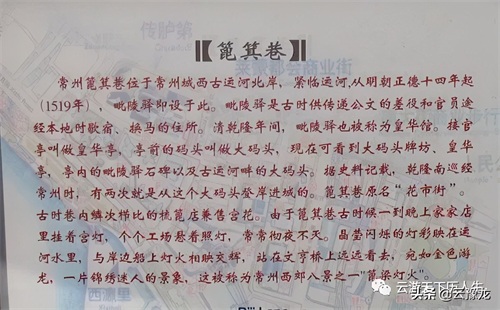 传胪第
【篦箕巷】
常州篦箕巷位于常州城西古运河北岸，紧临运河,从明朝正德十四年起
（1519年），毗陵驿即设于此。毗陵驿是古时供传递公文的差役和官员途
经本地时歇宿、换马的住所。清乾隆年间，毗陵驿也被称为皇华馆。接官
亭叫做皇华亭，亭前的码头叫做大码头，现在可看到大码头牌坊、皇华
亭，亭内的毗陵驿石碑以及古运河畔的大码头。据史料记载，乾隆南巡经
常州时，有两次就是从这个大码头登岸进城的。篦箕巷原名“花市街”。
古时巷内鳞次栉比的梳篦店兼售宫花。由于篦箕巷古时候一到晚上家家店
里挂着宫灯，个个工场悬着照灯，常常彻夜不天。晶莹闪烁的灯彩映在运
河水里，与岸边船上灯火相映交辉，站在文亨桥上远远看去，宛如金色游
龙，一片锦绣迷人的景象，这被称为常州西郊八景之一“篦梁灯火”。
西瀛里
云游天下历人生
头条@云游龙